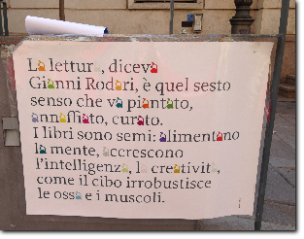 La lettura, diceva
Gianni Rodari, è quel sesto
senso che va piantato,
annaffiato, curato.
I libri sono semi: alimentano
la mente, accrescono
l'intelligenza, la creatività,
come il cibo irrobustisce
le ossa e i muscoli.